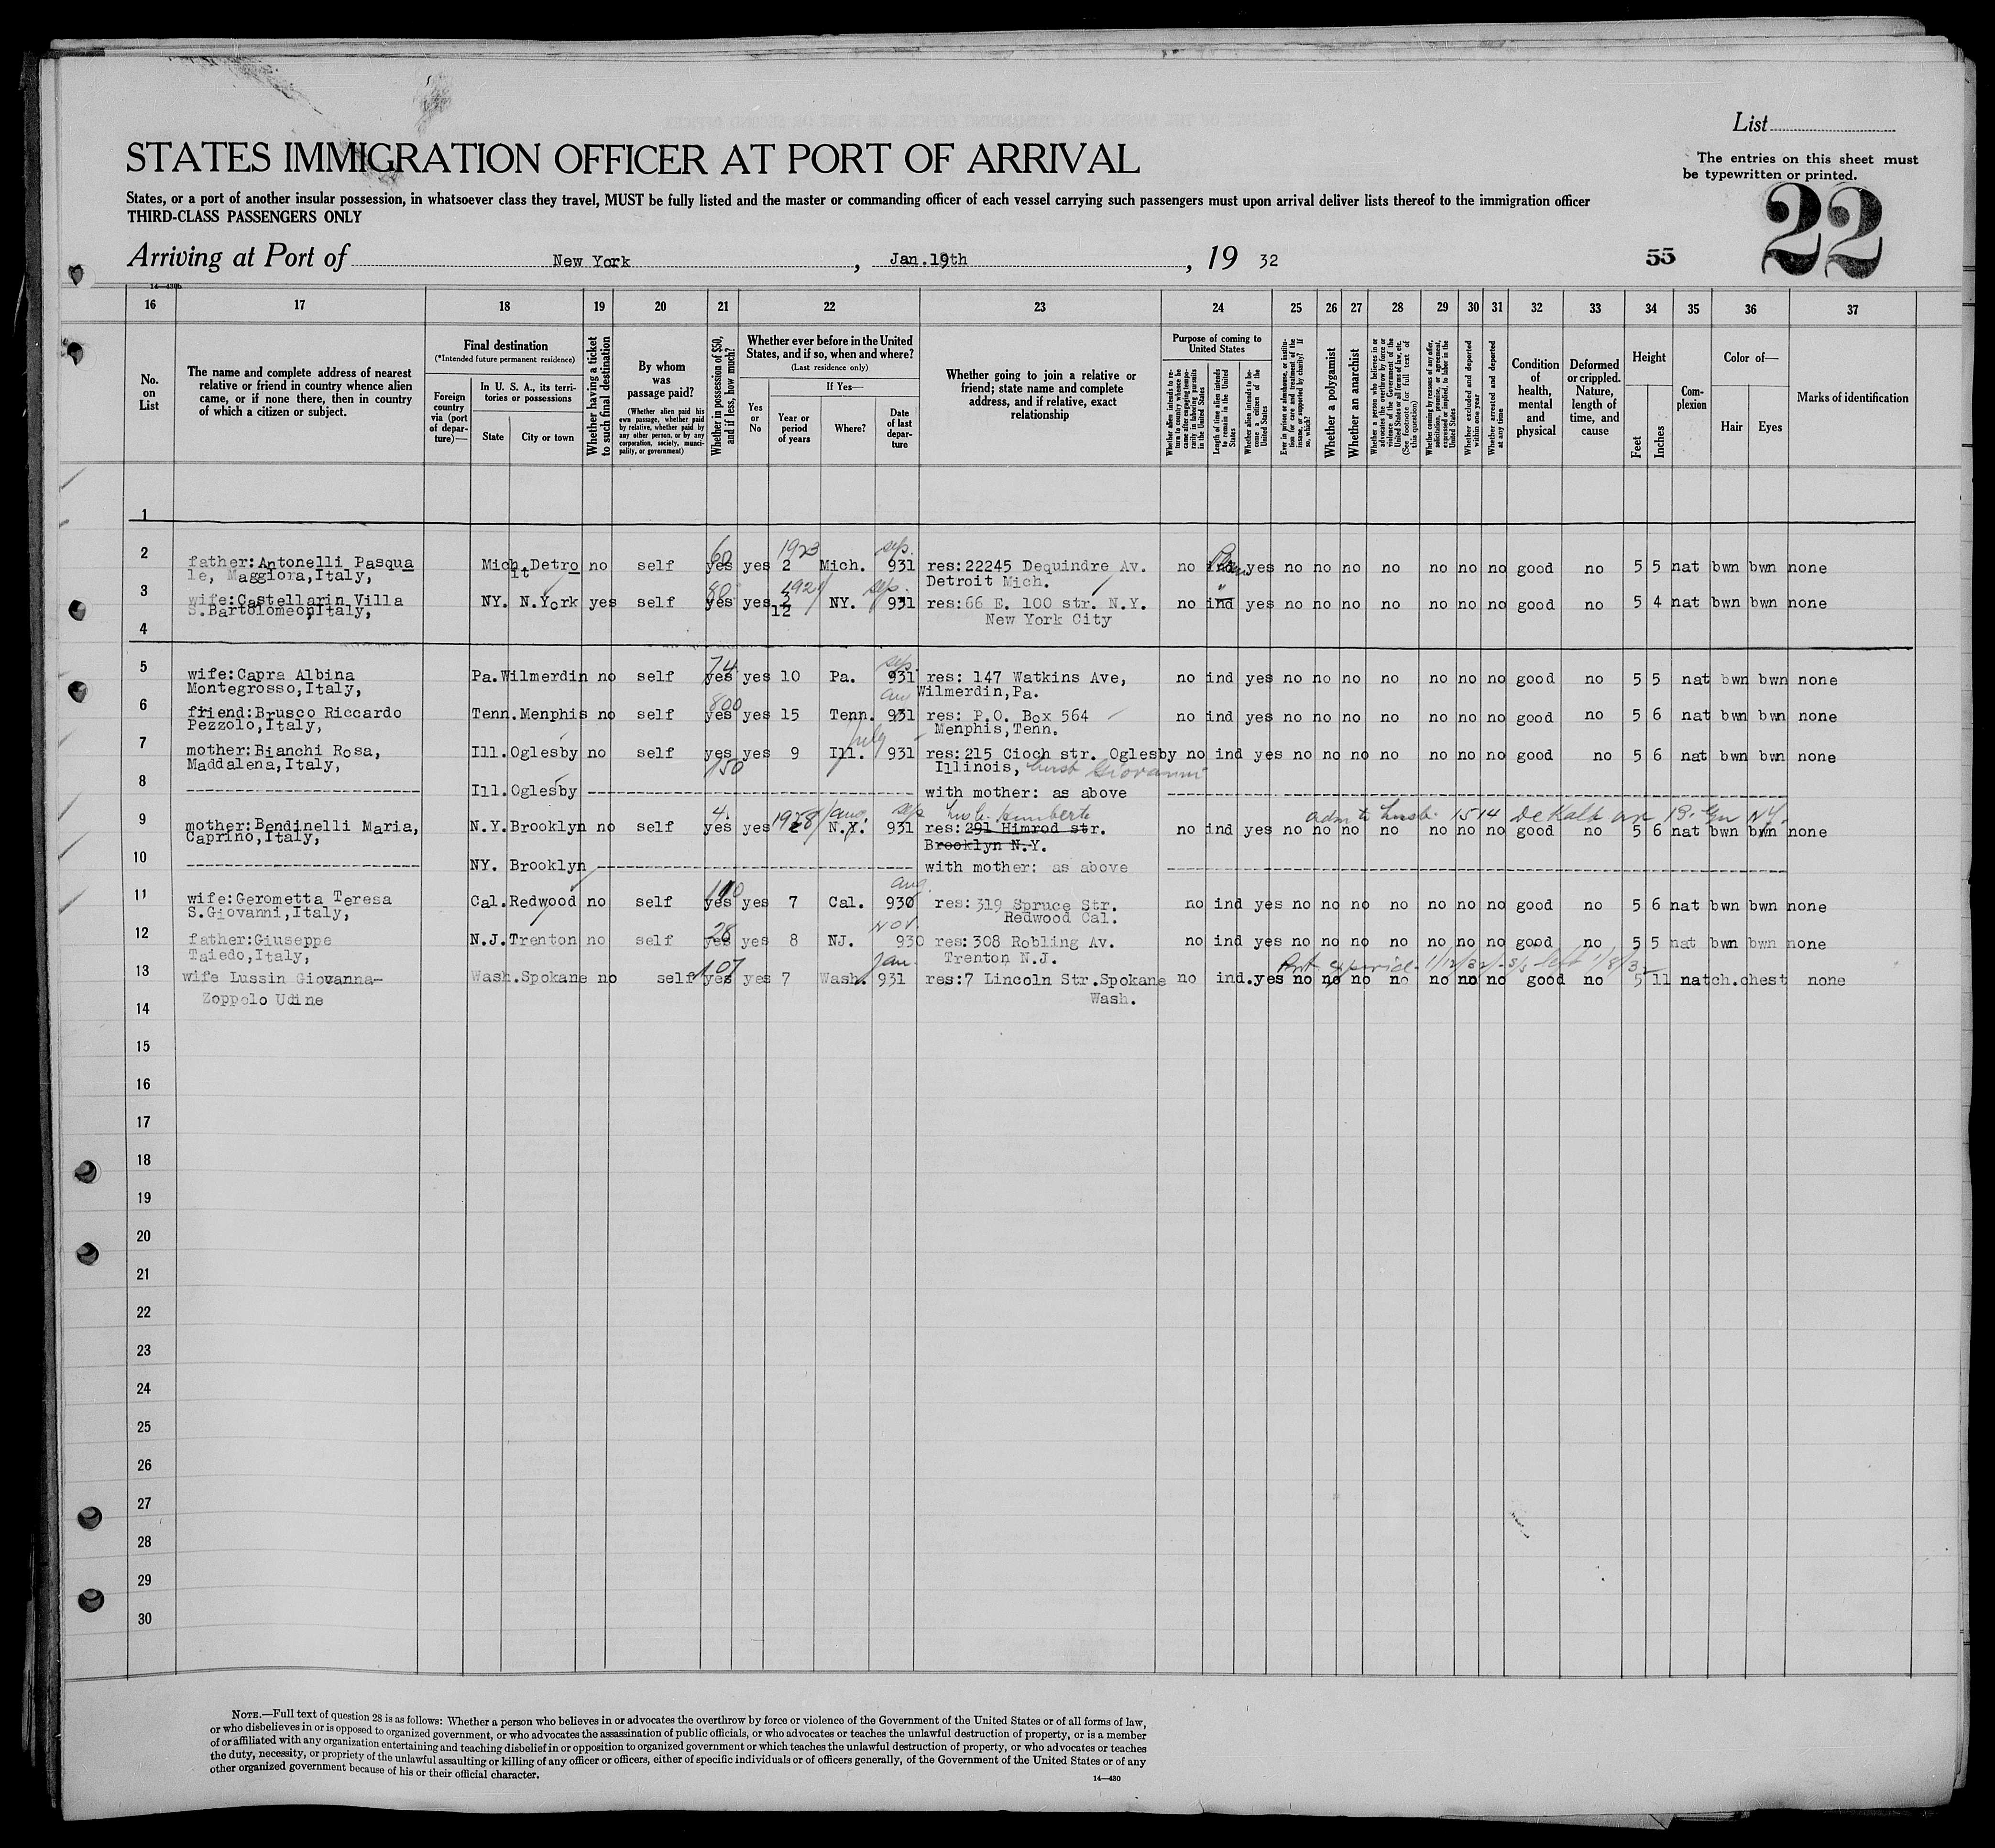 List
STATES IMMIGRATION OFFICER AT PORT OF ARRIVAL
The entries on this sheet must
be typewritten or printed.
States, or a port of another insular possession, in whatsoever class they travel, MUST be fully listed and the master or commanding officer of each vessel carrying such passengers must upon arrival deliver lists thereof to the immigration officer
THIRD-CLASS PASSENGERS ONLY
22
Arriving at Port of New York, Jan.19th, 19 32
55
14—430b
16 17 18 19 20 21 22 23 24 25 26 27 28 29 30 31 32 33 34 35 36 37
No. on List
The name and complete address of nearest relative or friend in country whence alien came, or if none there, then in country of which a citizen or subject.
Final destination
(*Intended future permanent residence)
Foreign country via (port of departure)—
In U. S. A., its territories or possessions
State City or town
Whether having a ticket to such final destination
By whom was passage paid?
(Whether alien paid his own passage, whether paid by relative, whether paid by any other person, or by any corporation, society, municipality, or government)
Whether in possession of $50, and if less, how much?
Whether ever before in the United States, and if so, when and where?
(Last residence only)
Yes or No
If Yes—
Year or period of years
Where?
Date of last departure
Whether going to join a relative or friend; state name and complete address, and if relative, exact relationship
Purpose of coming to United States
Whether alien intends to return to country whence he came after engaging temporarily in laboring pursuits in the United States
Length of time alien intends to remain in the United States
Whether alien intends to become a citizen of the United States
Ever in prison or almshouse, or institution for care and treatment of the insane, or supported by charity? If so, which?
Whether a polygamist
Whether an anarchist
Whether a person who believes in or advocates the overthrow by force or violence of the Government of the United States or all forms of law, etc. (See footnote for full text of this question)
Whether coming by reasons of any offer, solicitation, promise, or agreement, expressed or implied, to labor in the United States
Whether excluded and deported within one year
Whether arrested and deported at any time
Condition of health, mental and physical
Deformed or crippled. Nature, length of time, and cause
Height
Feet Inches
Complexion
Color of—
Hair Eyes
Marks of identification
1
60 1923 sep.
2 father:Antonelli Pasqua Mich Detro no self yes yes 2 Mich. 931 res:22245 Dequindre Av. no yes no no no no no no no good no 5 5 nat bwn bwn none
le, Maggiora,Italy, it Detroit Mich.
80 1921 sep.
3 wife:Castellarin Villa NY. N.York yes self yes yes 12 NY. 931 res:66 E. 100 str. N.Y. no ind yes no no no no no no no good no 5 4 nat bwn bwn none
S.Bartolomeo,Italy, New York City
4
74 sep.
5 wife:Capra Albina Pa.Wilmerdin no self yes yes 10 Pa. 931 res: 147 Watkins Ave, no ind yes no no no no no no no good no 5 5 nat bwn bwn none
Montegrosso,Italy, Wilmerdin,Pa.
800 aug
6 friend:Brusco Riccardo Tenn.Menphis no self yes yes 15 Tenn. 931 res: P.O. Box 564 no ind yes no no no no no no no good no 5 6 nat bwn bwn none
Pezzolo,Italy, Menphis,Tenn.
July
7 mother:Bianchi Rosa, Ill.Oglesby no self yes yes 9 Ill. 931 res:215 Cioch str. Oglesby no ind yes no no no no no no no good no 5 6 nat bwn bwn none
Maddalena,Italy, 150 Illinois, husb Giovanni
8 ------------------------ Ill.Oglesby ------------------------ with mother: as above ------------------------
4. 1928 / aug. sep husb. Humberto adm to husb. 1514 DeKalb av NY.
9 mother:Bendinelli Maria, N.Y.Brooklyn no self yes yes N.Y. 931 res:291 Himrod str. no ind yes no no no no no no no good no 5 6 nat bwn bwn none
Caprino,Italy, Brooklyn N.Y.
10 ------------------------ NY. Brooklyn ------------------------ with mother: as above ------------------------
100 aug.
11 wife:Gerometta Teresa Cal.Redwood no self yes yes 7 Cal. 930 res:319 Spruce Str. no ind yes no no no no no no no good no 5 6 nat bwn bwn none
S.Giovanni,Italy, Redwood Cal.
28 Nov.
12 father:Giuseppe N.J.Trenton no self yes yes 8 NJ. 930 res:308 Robling Av. no ind yes no no no no no no no good no 5 5 nat bwn bwn none
Taiedo,Italy, Trenton N.J.
107 Jan.
13 wife Lussin Giovanna- Wash.Spokane no self yes yes 7 Wash. 931 res:7 Lincoln Str.Spokane no ind.yes no no no no no no no good no 5 11 nat ch.chest none
Zoppolo Udine Wash.
14
15
16
17
18
19
20
21
22
23
24
25
26
27
28
29
30
NOTE.—Full text of question 28 is as follows: Whether a person who believes in or advocates the overthrow by force or violence of the Government of the United States or of all forms of law,
or who disbelieves in or is opposed to organized government, or who advocates the assassination of public officials, or who advocates or teaches the unlawful destruction of property, or is a member
of or affiliated with any organization entertaining and teaching disbelief in or opposition to organized government or which teaches the unlawful destruction of property, or who advocates or teaches
the duty, necessity, or propriety of the unlawful assaulting or killing of any officer or officers, either of specific individuals or of officers generally, of the Government of the United States or of any
other organized government because of his or their official character.
14—430